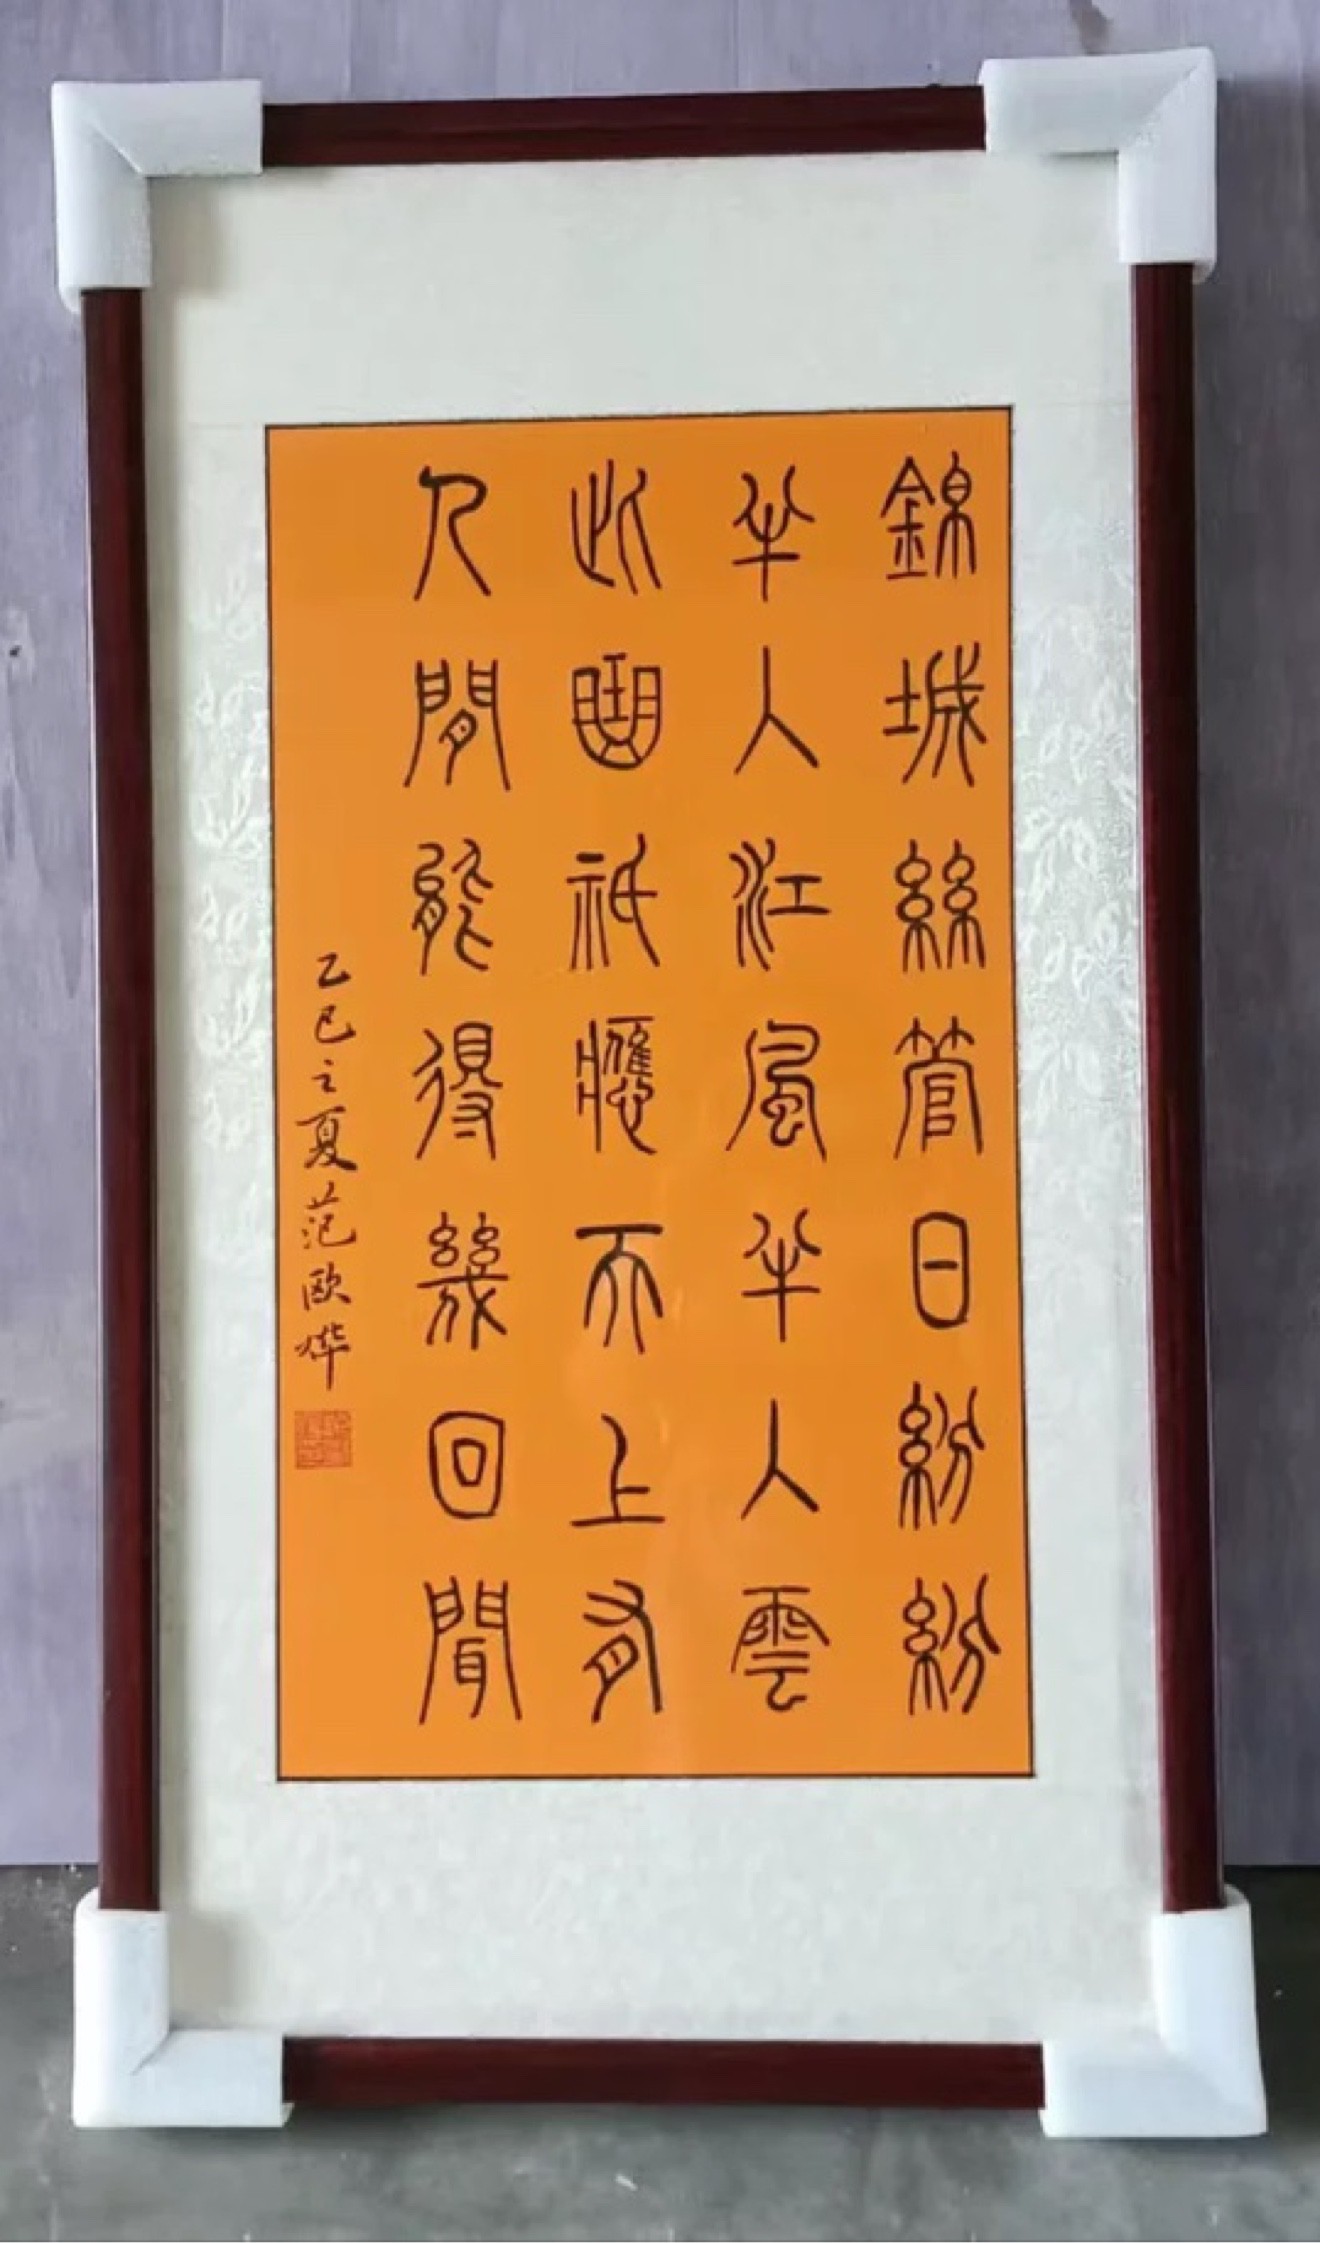 錦城絲管日紛紛
半入江風半入雲
此曲祇應天上有
人閒能得幾回聞
乙巳之夏范欧烨